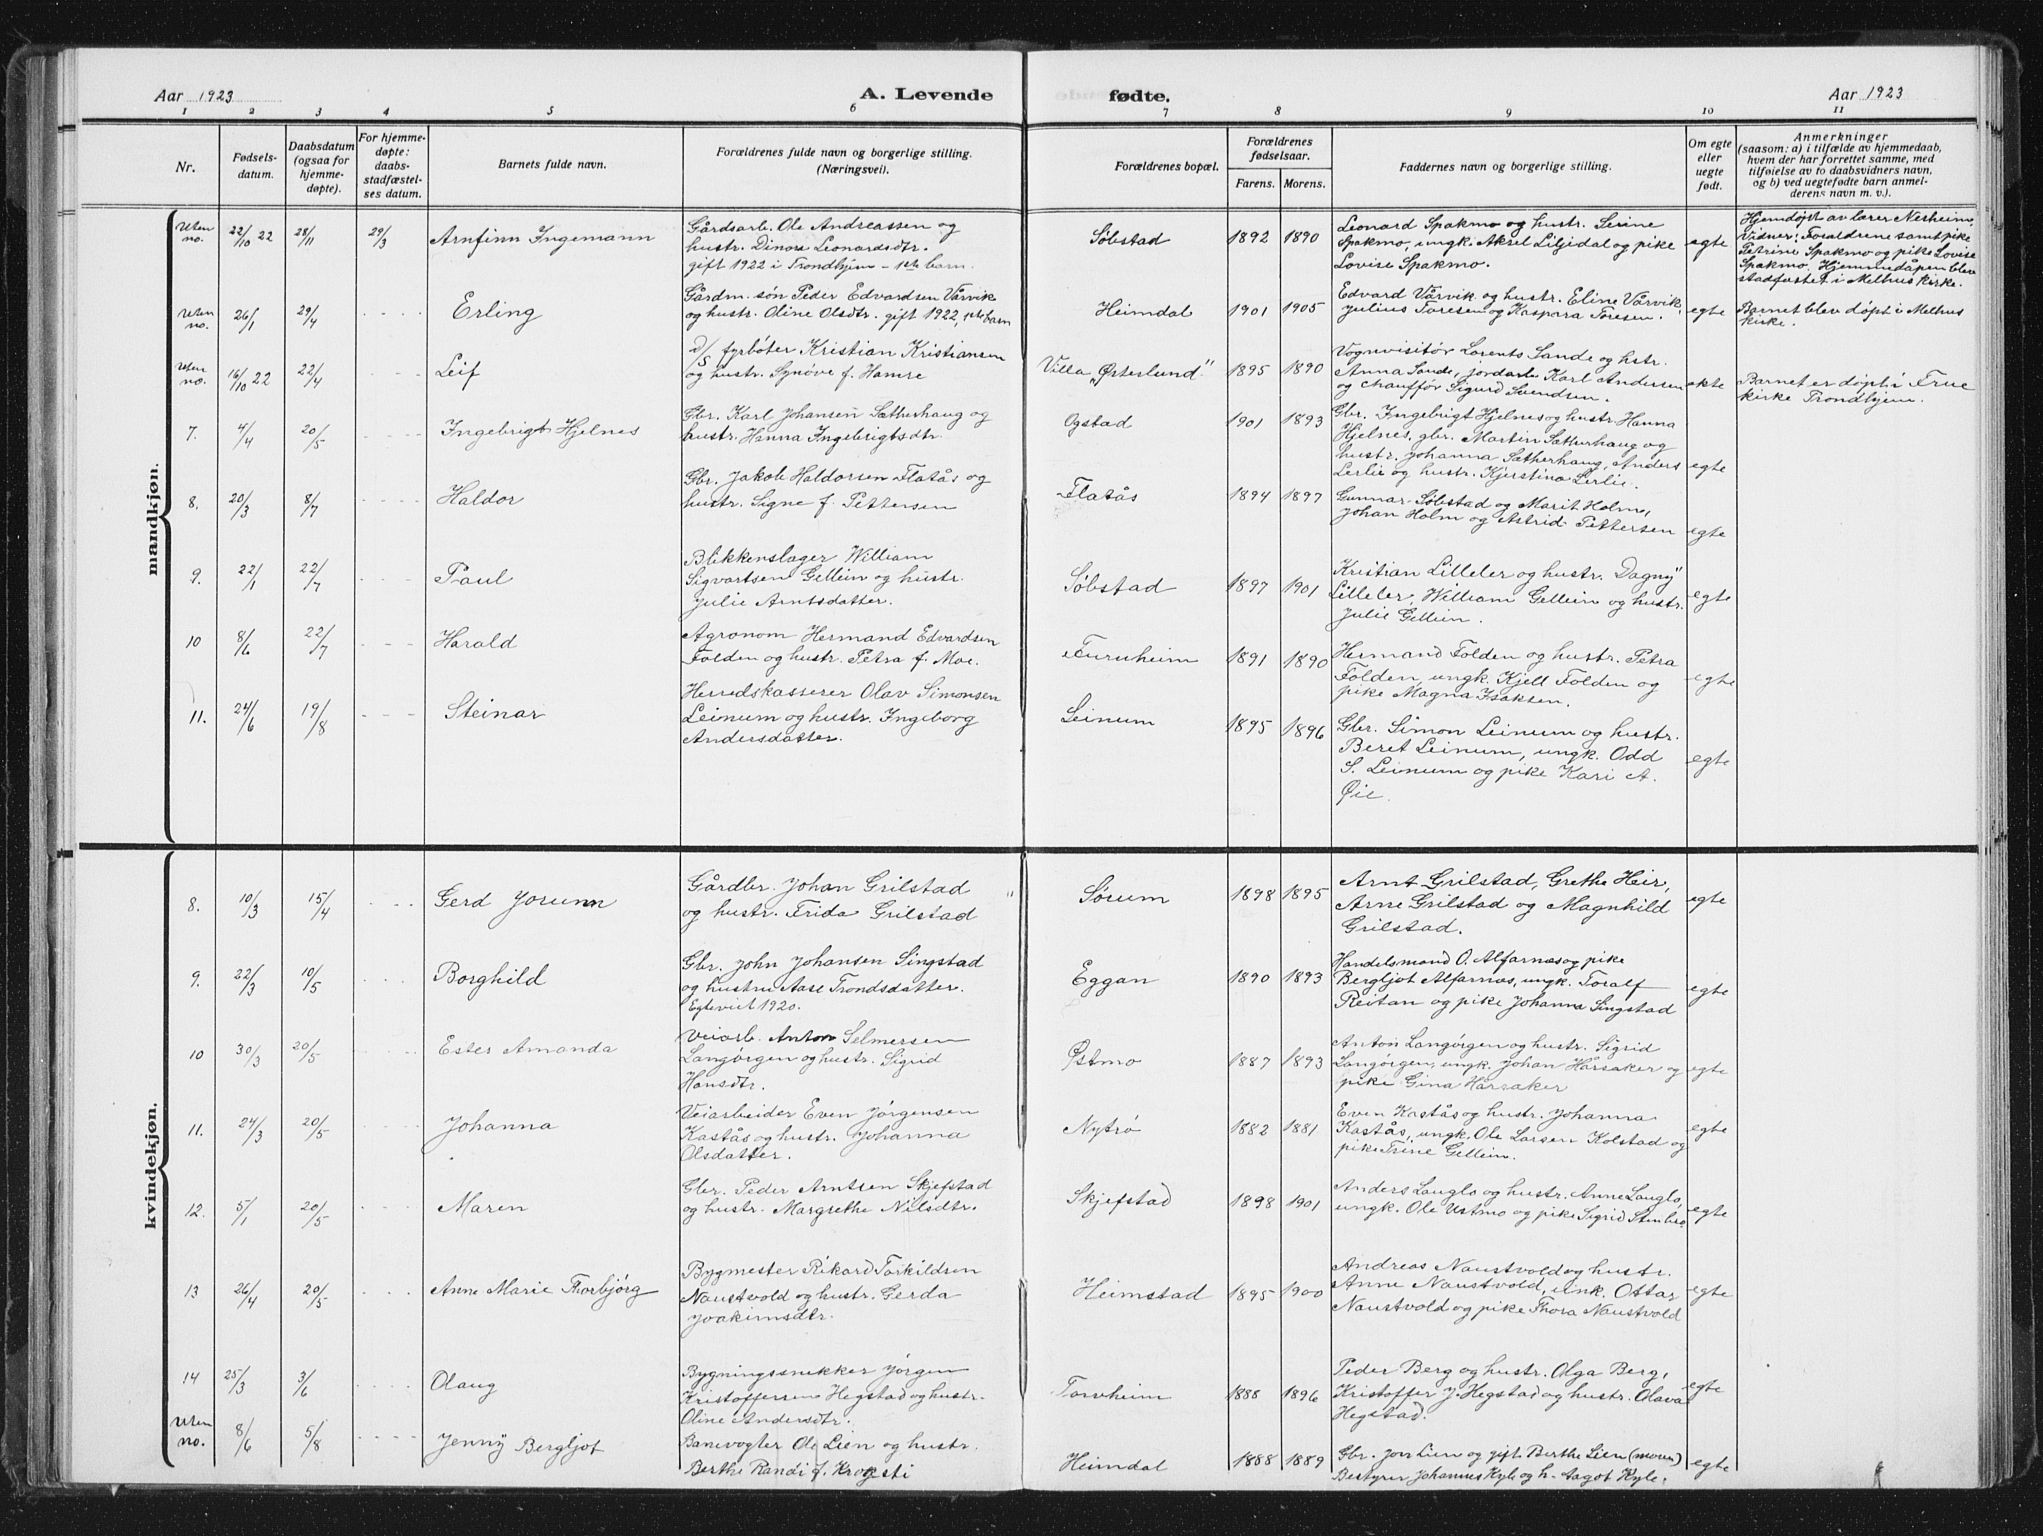 Aar 1923
A. Levende
fødte.
Aar 1923
1 2 3 4 5 6 7 8 9 10 11
Nr.
Fødsels-
datum.
Daabsdatum
(ogsaa for
hjemme-
døpte).
For hjemme-
døpte:
daabs-
stadfæstel-
ses datum.
Barnets fulde navn.
Forældrenes fulde navn og borgerlige stilling.
(Næringsvei).
Forældrenes bopæl.
Forældrenes
fødselsaar.
Farens. Morens.
Faddernes navn og borgerlige stilling.
Om egte
eller
uegte
født.
Anmerkninger
(saasom: a) i tilfælde av hjemmedaab,
hvem der har forrettet samme, med
tilføielse av to daabsvidners navn,
og b) ved uegtefødte barn anmel-
derens navn m. v.).
mandkjøn.
Uten
no.
22/10 22
28/11
29/3
Arnfinn Ingemann
Gårdsarb. Ole Andreassen og
hustr. Dinora Leonardsdtr.
gift 1922 i Trondhjem - 1ste barn.
Søbstad
1892 1890
Leonard Spakmo og hustr. Serine
Spakmo, ungk. Aksel Liljedal og pike
Lovise Spakmo.
egte
Hjemdøpt av lærer Nesheim,
Vidner: Foreldrene samt pike
Petrine Spakmo og pike Lovise
Spakmo. Hjemmedåpen blev
stadfæstet i Melhus kirke.
Uten
no.
26/1
29/4
Erling
Gårdm. søn Peder Edvardsen Vårvik
og hustr. Oline Olsdtr. gift 1922, 1ste barn
Heimdal
1901 1905
Edvard Vårvik og hustr. Eline Vårvik,
Julius Toresen og Kaspara Toresen.
egte
Barnet blev døpt i Melhus
kirke.
Uten
no.
16/10 22
22/4
Leif
D/S fyrbøter Kristian Kristiansen
og hustr. Synøve f. Hamre
Villa "Østerlund"
1895 1890
Vognvisitør Lorents Sande og hstr.
Anna Sande, jordarb. Karl Andersen
og chauffør Sigurd Svendsen.
ekte
Barnet er døpt i Frue
kirke Trondhjem.
7.
4/4
20/5
Ingebrigt Hjelnes
Gbr. Karl Johansen Sætherhaug og
hustr. Hanna Ingebrigtsdtr.
Ogstad
1901 1893
Gbr. Ingebrigt Hjelnes og hustr. Hanna
Hjelnes, gbr. Martin Sætherhaug og
hustr. Johanna Sætherhaug, Anders
Lerlie og hustr. Kjerstina Lerlie.
egte
8.
20/3
8/7
Haldor
Gbr. Jakob Haldorsen Flatås og
hustr. Signe f. Pettersen
Flatås
1894 1897
Gunnar Søbstad og Marit Holm,
Johan Holm og Astrid Pettersen
egte
9.
22/1
22/7
Paul
Blikkenslager William
Sigvartsen Gellein og hustr.
Julie Arntsdatter.
Søbstad
1897 1901
Kristian Lilleler og hustr. Dagny
Lilleler, William Gellein og hustr.
Julie Gellein.
egte
10
8/6
22/7
Harald
Agronom Hermand Edvardsen
Folden og hustr. Petra f. Moe.
Furuheim
1891 1890
Hermand Folden og hustr. Petra
Folden, ungk. Kjell Folden og
pike Magna Isaksen.
egte
11.
24/6
19/8
Steinar
Herredskasserer Olav Simonsen
Leinum og hustr. Ingeborg
Andersdatter.
Leinum
1895 1896
Gbr. Simon Leinum og hustr.
Beret Leinum, ungk. Odd
S. Leinum og pike Kari A.
Øie.
egte
kvindekjøn.
8.
10/3
15/4
Gerd Jorunn
Gårdbr. Johan Grilstad
og hustr. Frida Grilstad
Sørum
1898 1895
Arnt Grilstad, Grethe Heir,
Arne Grilstad og Magnhild
Grilstad.
egte
9.
22/3
10/5
Borghild
Gbr. John Johansen Singstad
og hustru Aase Trondsdatter.
Egteviet 1920.
Eggan
1890 1893
Handelsmand O. Alfarnæs og pike
Bergljot Alfarnæs, ungk. Toralf
Reitan og pike Johanna Singstad
egte
10
30/3
20/5
Ester Amanda
Veiarb. Anton Selmersen
Langørgen og hustr. Sigrid
Hansdtr.
Østmo
1887 1893
Anton Langørgen og hustr. Sigrid
Langørgen, ungk. Johan Hårsaker og
pike Gina Hårsaker
egte
11.
24/3
20/5
Johanna
Veiarbeider Even Jørgensen
Kastås og hustr. Johanna
Olsdatter.
Nytrø
1882 1881
Even Kastås og hustr. Johanna
Kastås, ungk. Ole Larsen Kolstad og
pike Trine Gellein.
egte
12.
5/1
20/5
Maren
Gbr. Peder Arntsen Skjefstad
og hustr. Margrethe Nilsdtr.
Skjefstad
1898 1901
Anders Langlo og hustr. Anne Langlo,
ungk. Ole Ustmo og pike Sigrid Stenberg
egte
13
26/4
20/5
Anne Marie Thorbjørg
Bygmester Rikard Torkildsen
Naustvold og hustr. Gerda
Joakimsdtr.
Heimstad
1895 1900
Andreas Naustvold og hustr.
Anne Naustvold, unk. Ottar
Naustvold og pike Thora Naustvold
egte
14
25/3
3/6
Olaug
Bygningssnekker Jørgen
Kristoffersen Hegstad og hustr.
Oline Andersdtr.
Torvheim
1888 1896
Peder Berg og hustr. Olga Berg,
Kristoffer J. Hegstad og hustr. Olava
Hegstad.
egte
Uten
no.
8/6
5/8
Jenny Bergljot
Banevogter Ole Lien og hustr.
Berthe Randi f. Krogsti
Heimdal
1888 1889
Gbr. Jon Lien og gift Berthe Lien (moren)
Bestyrer Johannes Kyle og h. Aagot Kyle.
egte